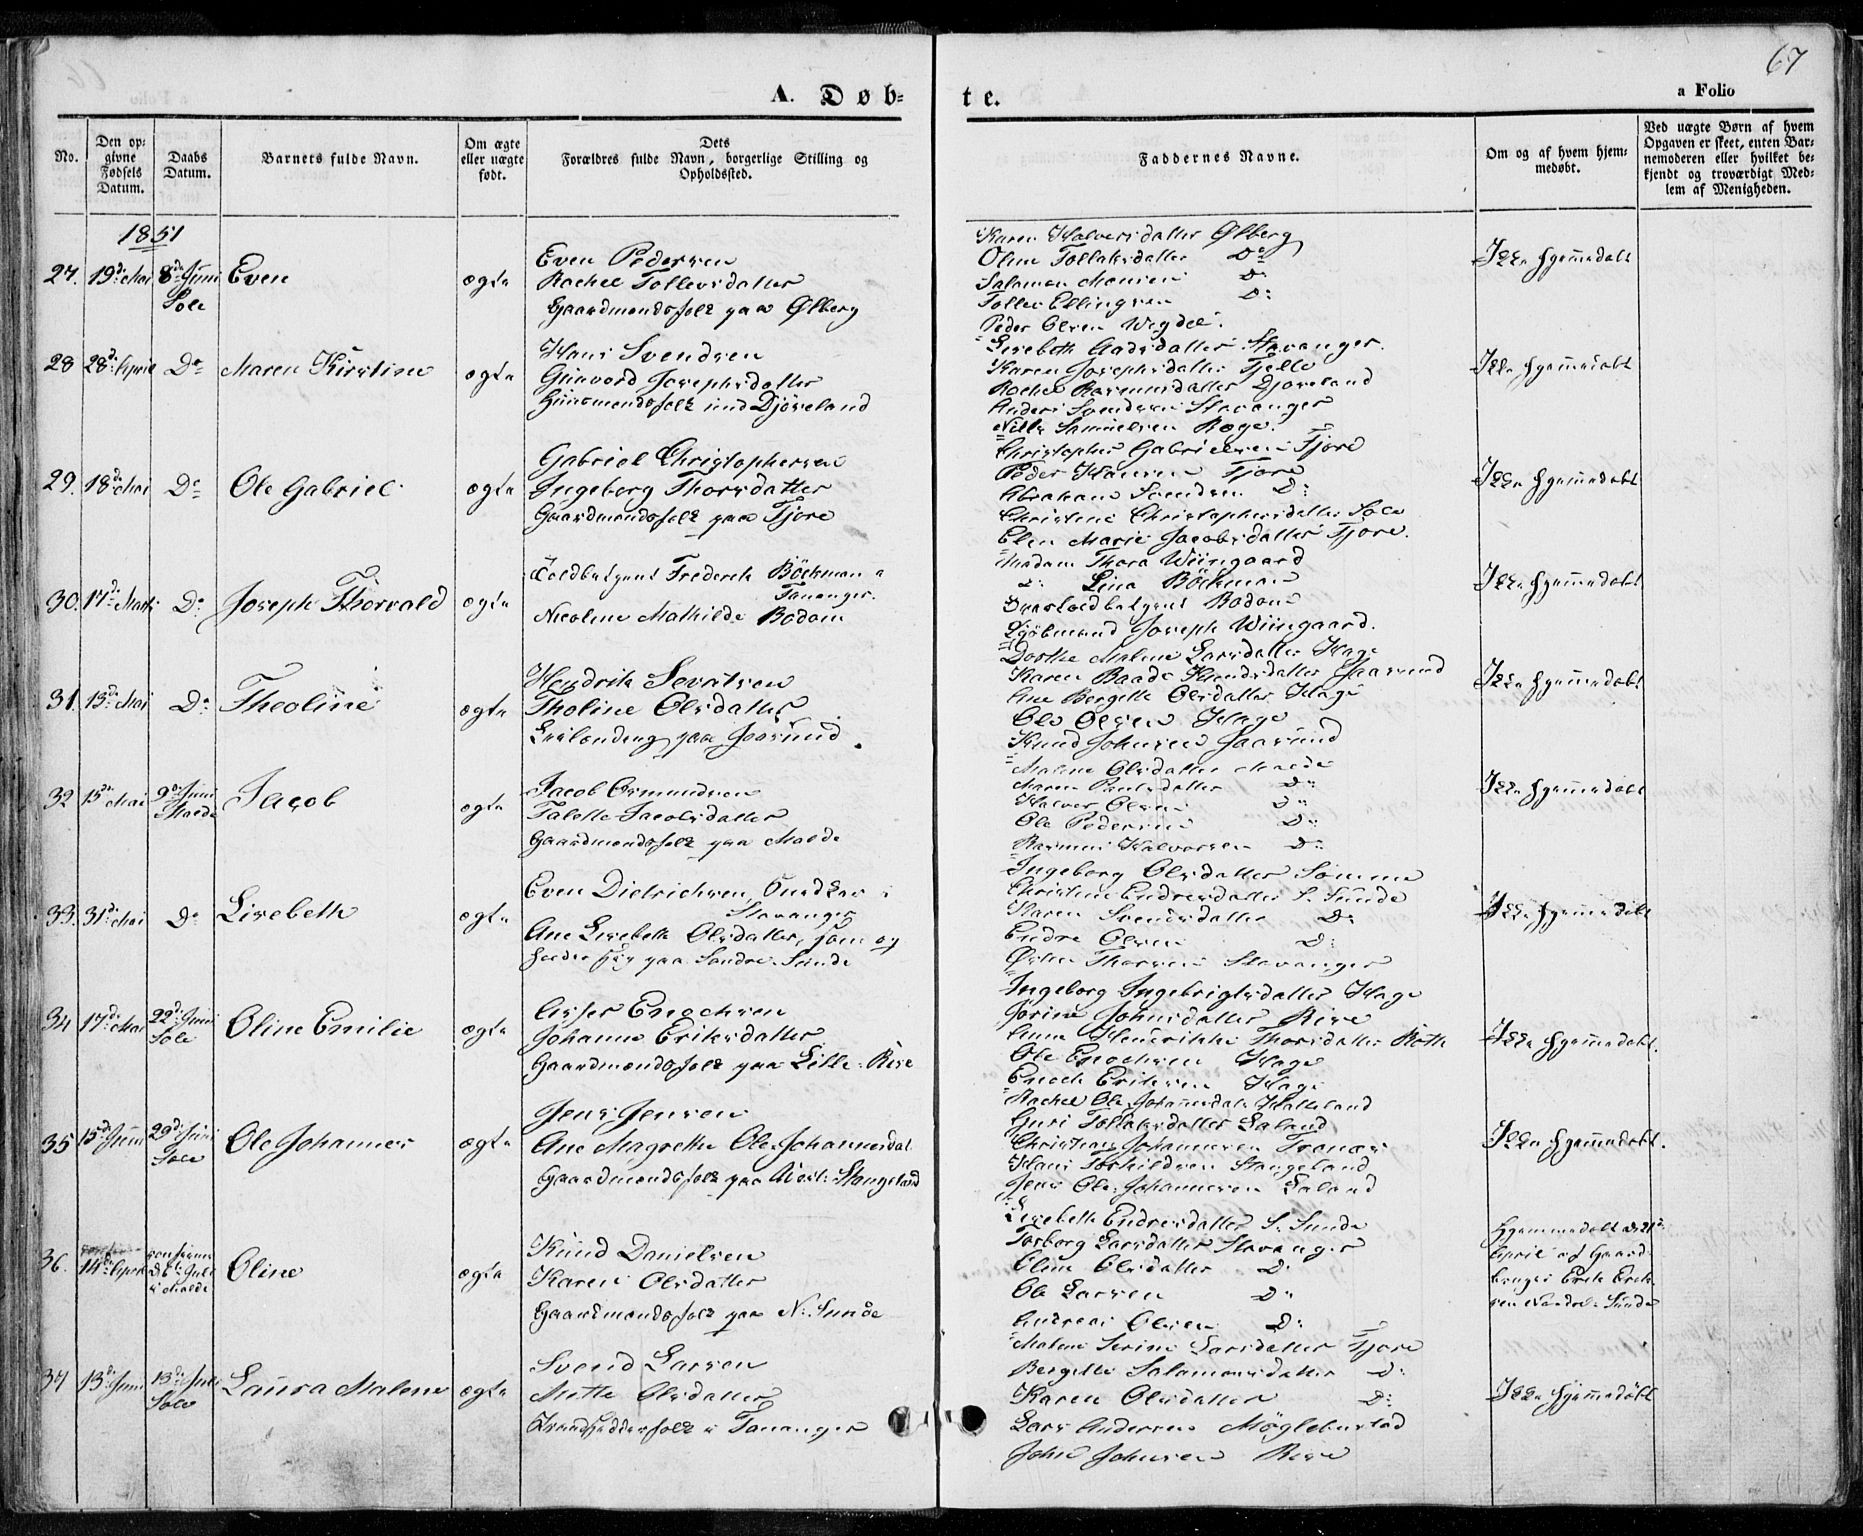 67
A. Døb-
te.
a Folio
No.
Den op-
givne
Fødsels
Datum.
Daabs
Datum.
Barnets fulde Navn.
Om ægte
eller uægte
født.
Dets
Forældres fulde Navn, borgerlige Stilling og
Opholdssted.
Faddernes Navne.
Om og af hvem hjem-
medøbt.
Ved uægte Børn af hvem
Opgaven er skeet, enten Bar-
nemoderen eller hvilket be-
kjendt og troværdigt Med-
lem af Menigheden.
1851
27. 19de Mai 8de Juni
Sole
Even
ægte
Even Pedersen
Rachel Tollevsdatter
Gaardmandsfolk paa Ølberg
Karen Halversdatter Ølberg
Oline Tollaksdatter Do
Salamon Monsen D:
Tollev Ellingsen D:
Peder Olsen Wigdel.
Ikke hjemmedøbt
28 28de April Do
Maren Kirstine
ægte
Hans Svendsen
Gunvord Josephsdatter
Huusmandsfolk und Djøseland
Lisebeth Aadsdatter Stavanger.
Karen Josephsdatter Fjelle
Rachel Rasmusdatter Djøseland
Anders Svendsen Stavanger
Nills Samuelsen Røge.
Ikke hjemmedøbt
29. 18de Mai Do
Ole Gabriel
ægte
Gabriel Christophersen
Ingeborg Thorsdatter
Gaardmandsfolk paa Tjore
Christopher Gabrielsen Tjore
Peder Hansen Tjore
Abraham Svendsen D:
Christine Christophersdatter Sole
Elen Marie Jacobsdatter Tjore.
Ikke hjemmedøbt
30. 17de Marts Do
Joseph Thorvald
ægte
Toldbetjent Frederik Böckman
Tananger.
Nicoline Mathilde Bodom
Madam Thora Wiingaard
D: Lina Böckman
Overtoldbetjent Bodom
Kjöbmand Joseph Wiingaard.
Ikke hjemmedøbt
31. 13de Mai Do
Theoline
ægte
Hendrik Sevatsen
Tholine Olsdatter
Leilænding paa Jaasund.
Dorthe Malene Larsdatter Hage
Karen Baade Knudsdatter Jaasund
Ane Bergitte Olsdatter Hage
Ole Olsen Hage
Knud Johnsen Jaasund
Ikke hjemmedøbt
32 15de Mai 9de Juni
Malde
Jacob
ægte
Jacob Osmundsen
Talette Jacobsdatter
Gaardmandsfolk paa Malde
Malene Olsdatter Malde
Maren Paulsdatter D:
Halver Olsen D:
Ole Pedersen D:
Rasmus Halvorsen D:
Ikke hjemmedøbt
33. 31de Mai Do
Lisebeth
ægte
Even Dietrichsen, Snedker i
Stavanger
Ane Lisebeth Olsdatter, som og
holder sig paa Søndre Sunde
Ingeborg Olsdatter Sømme
Christine Endresdatter S. Sunde
Karen Svendsdatter D:
Endre Olsen D:
Østen Thorsen Stavanger
Ikke hjemmedøbt
34 17de Mai 22de Juni
Sole
Oline Emilie
ægte
Asser Enochsen
Johanne Eriksdatter
Gaardmandsfolk paa Lille-Rise
Ingeborg Ingebrigtsdatter Hage
Serine Johnsdatter Rise
Anne Henrikke Thorsdatter Roth
Ole Enochsen Hage
Enoch Eriksen Hage
Ikke hjemmedøbt.
35 15de Juni 29de Juni
Sole
Ole Johannes
ægte
Jens Jensen
Ane Magrethe Ole-Johannesdat.
Gaardmandsfolk paa Stangeland
Rachel Ole-Johannesdatr Halleland
Guri Tollaksdatter Laland
Christian Johannesen
Hans Torkildsen Stangeland
Jens Ole-Johannesen Laland
Ikke hjemmedøbt.
36. 14de April
d 6te Juli
i Malde
Oline
ægte
Knud Danielsen
Karen Olsdatter
Gaardmandsfolk paa N: Sunde
Lisebeth Endresdatter S. Sunde
Torborg Larsdatter Stavanger
Oline Olsdatter D:
Ole Larsen D:
Andreas Olsen D:
Hjemmedøbt d: 21de
April af Gaard-
bruger Erik Erik-
sen Nordre Sunde
37 13de Juni 13de Juli
Sole
Laura Malene
ægte
Svend Larsen
Mette Olsdatter
Strandsidderfolk i Tananger
Malene Serine Larsdatter Tjore
Bergitte Salamonsdatter D:
Karen Olsdatter D:
Lars Andersen Møglebustad
John Johnsen Rise
Ikke hjemmedøbt